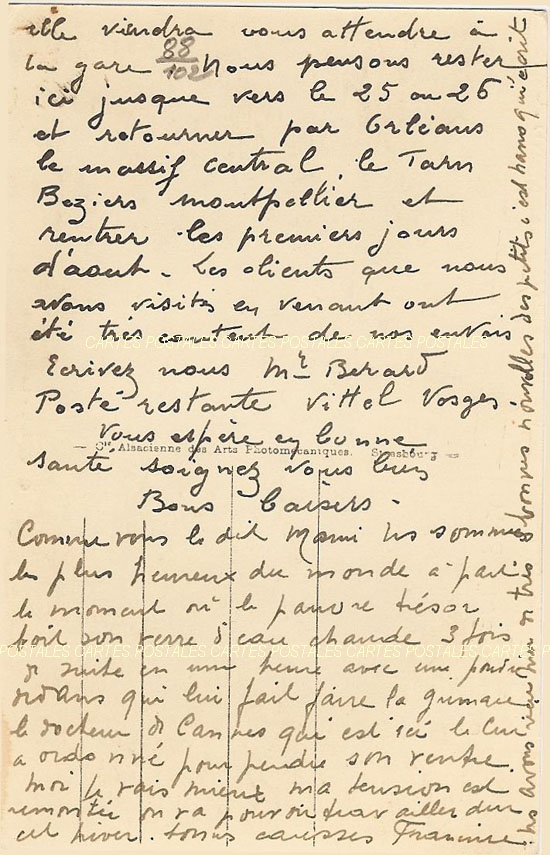 elle viendra vous attendre à
la gare 88/102 Nous pensons rester
ici jusque vers le 25 ou 26
et retourner par Orléans
le massif central, le Tarn
Beziers montpellier et
rentrer les premiers jours
d'aout. Les clients que nous
avons visités en venant ont
été très content de vos envois
CARTES POSTALES CARTES POSTALES CARTES POSTALES
Ecrivez nous Mr Berard
Posté restante Vittel Vosges.
Vous espère en bonne
Cie Alsacienne des Arts Photomécaniques. Strasbourg
santé soignez vous bien
Bons baisers.
Comme vous le dit Mami ns sommes
les plus heureux du monde à part
le moment où le pauvre trésor
boit son verre d'eau chaude 3 fois
POSTALES CARTES POSTALES CARTES POSTALES CARTES POSTALES
de suite en une heure avec une poudre
dedans qui lui fait faire la grimace
le docteur de Cannes qui est ici le lui
a ordonné pour perdre son ventre.
moi je vais mieux ma tension est
remontée on va pouvoir travailler dur
cet hiver. bonnes caresses Francine
ns avons de très bonnes nouvelles des petits c'est qui écrit